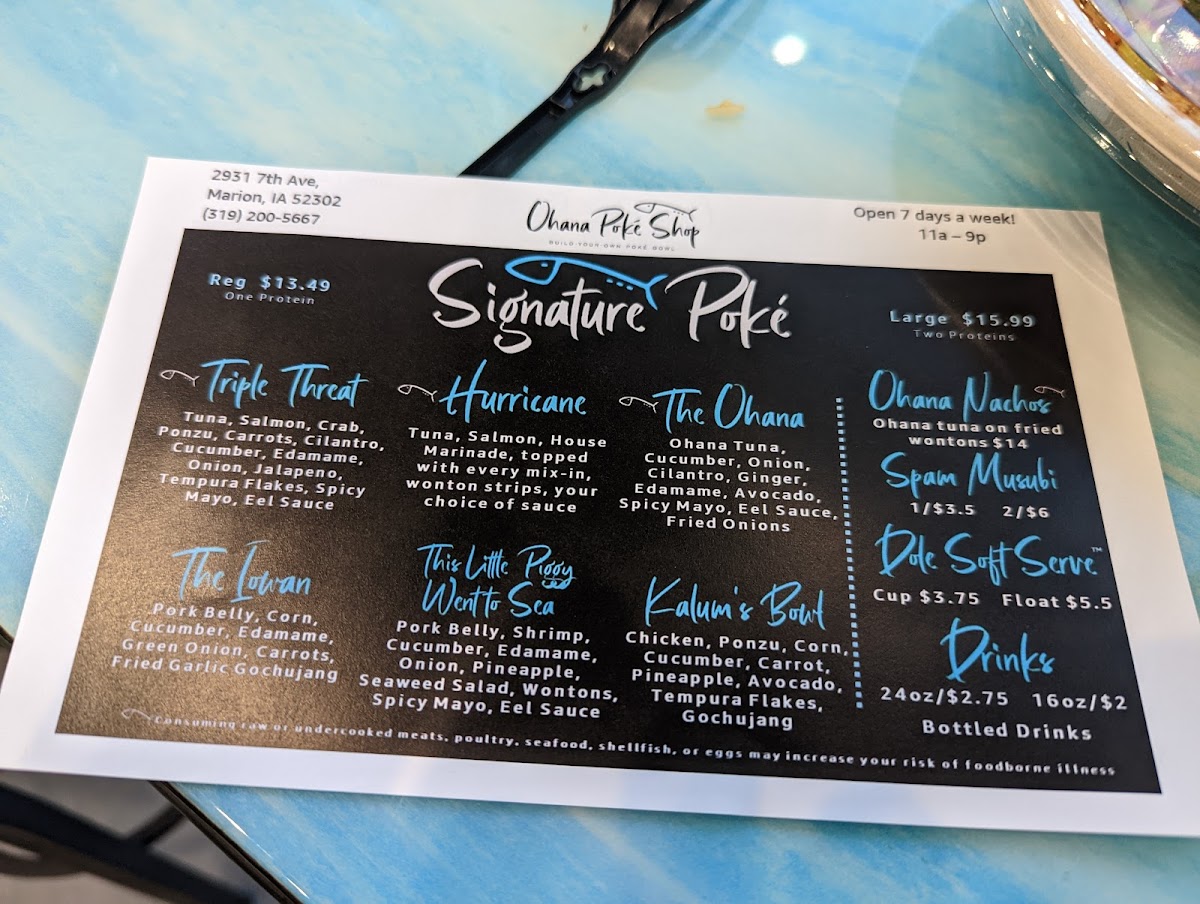 2931 7th Ave,
Marion, IA 52302
(319) 200-5667
Ohana Poké Shop
BUILD-YOUR-OWN POKÉ BOWL
Open 7 days a week!
11a – 9p
Reg $13.49
One Protein
Signature Poké
Large $15.99
Two Proteins
Triple Threat
Tuna, Salmon, Crab,
Ponzu, Carrots, Cilantro,
Cucumber, Edamame,
Onion, Jalapeno,
Tempura Flakes, Spicy
Mayo, Eel Sauce
Hurricane
Tuna, Salmon, House
Marinade, topped
with every mix-in,
wonton strips, your
choice of sauce
The Ohana
Ohana Tuna,
Cucumber, Onion,
Cilantro, Ginger,
Edamame, Avocado,
Spicy Mayo, Eel Sauce,
Fried Onions
The Iowan
Pork Belly, Corn,
Cucumber, Edamame,
Green Onion, Carrots,
Fried Garlic Gochujang
This Little Piggy
Went to Sea
Pork Belly, Shrimp,
Cucumber, Edamame,
Onion, Pineapple,
Seaweed Salad, Wontons,
Spicy Mayo, Eel Sauce
Kalum's Bowl
Chicken, Ponzu, Corn,
Cucumber, Carrot,
Pineapple, Avocado,
Tempura Flakes,
Gochujang
Ohana Nachos
Ohana tuna on fried
wontons $14
Spam Musubi
1/$3.5 2/$6
Dole Soft Serve™
Cup $3.75 Float $5.5
Drinks
24oz/$2.75 16oz/$2
Bottled Drinks
Consuming raw or undercooked meats, poultry, seafood, shellfish, or eggs may increase your risk of foodborne illness